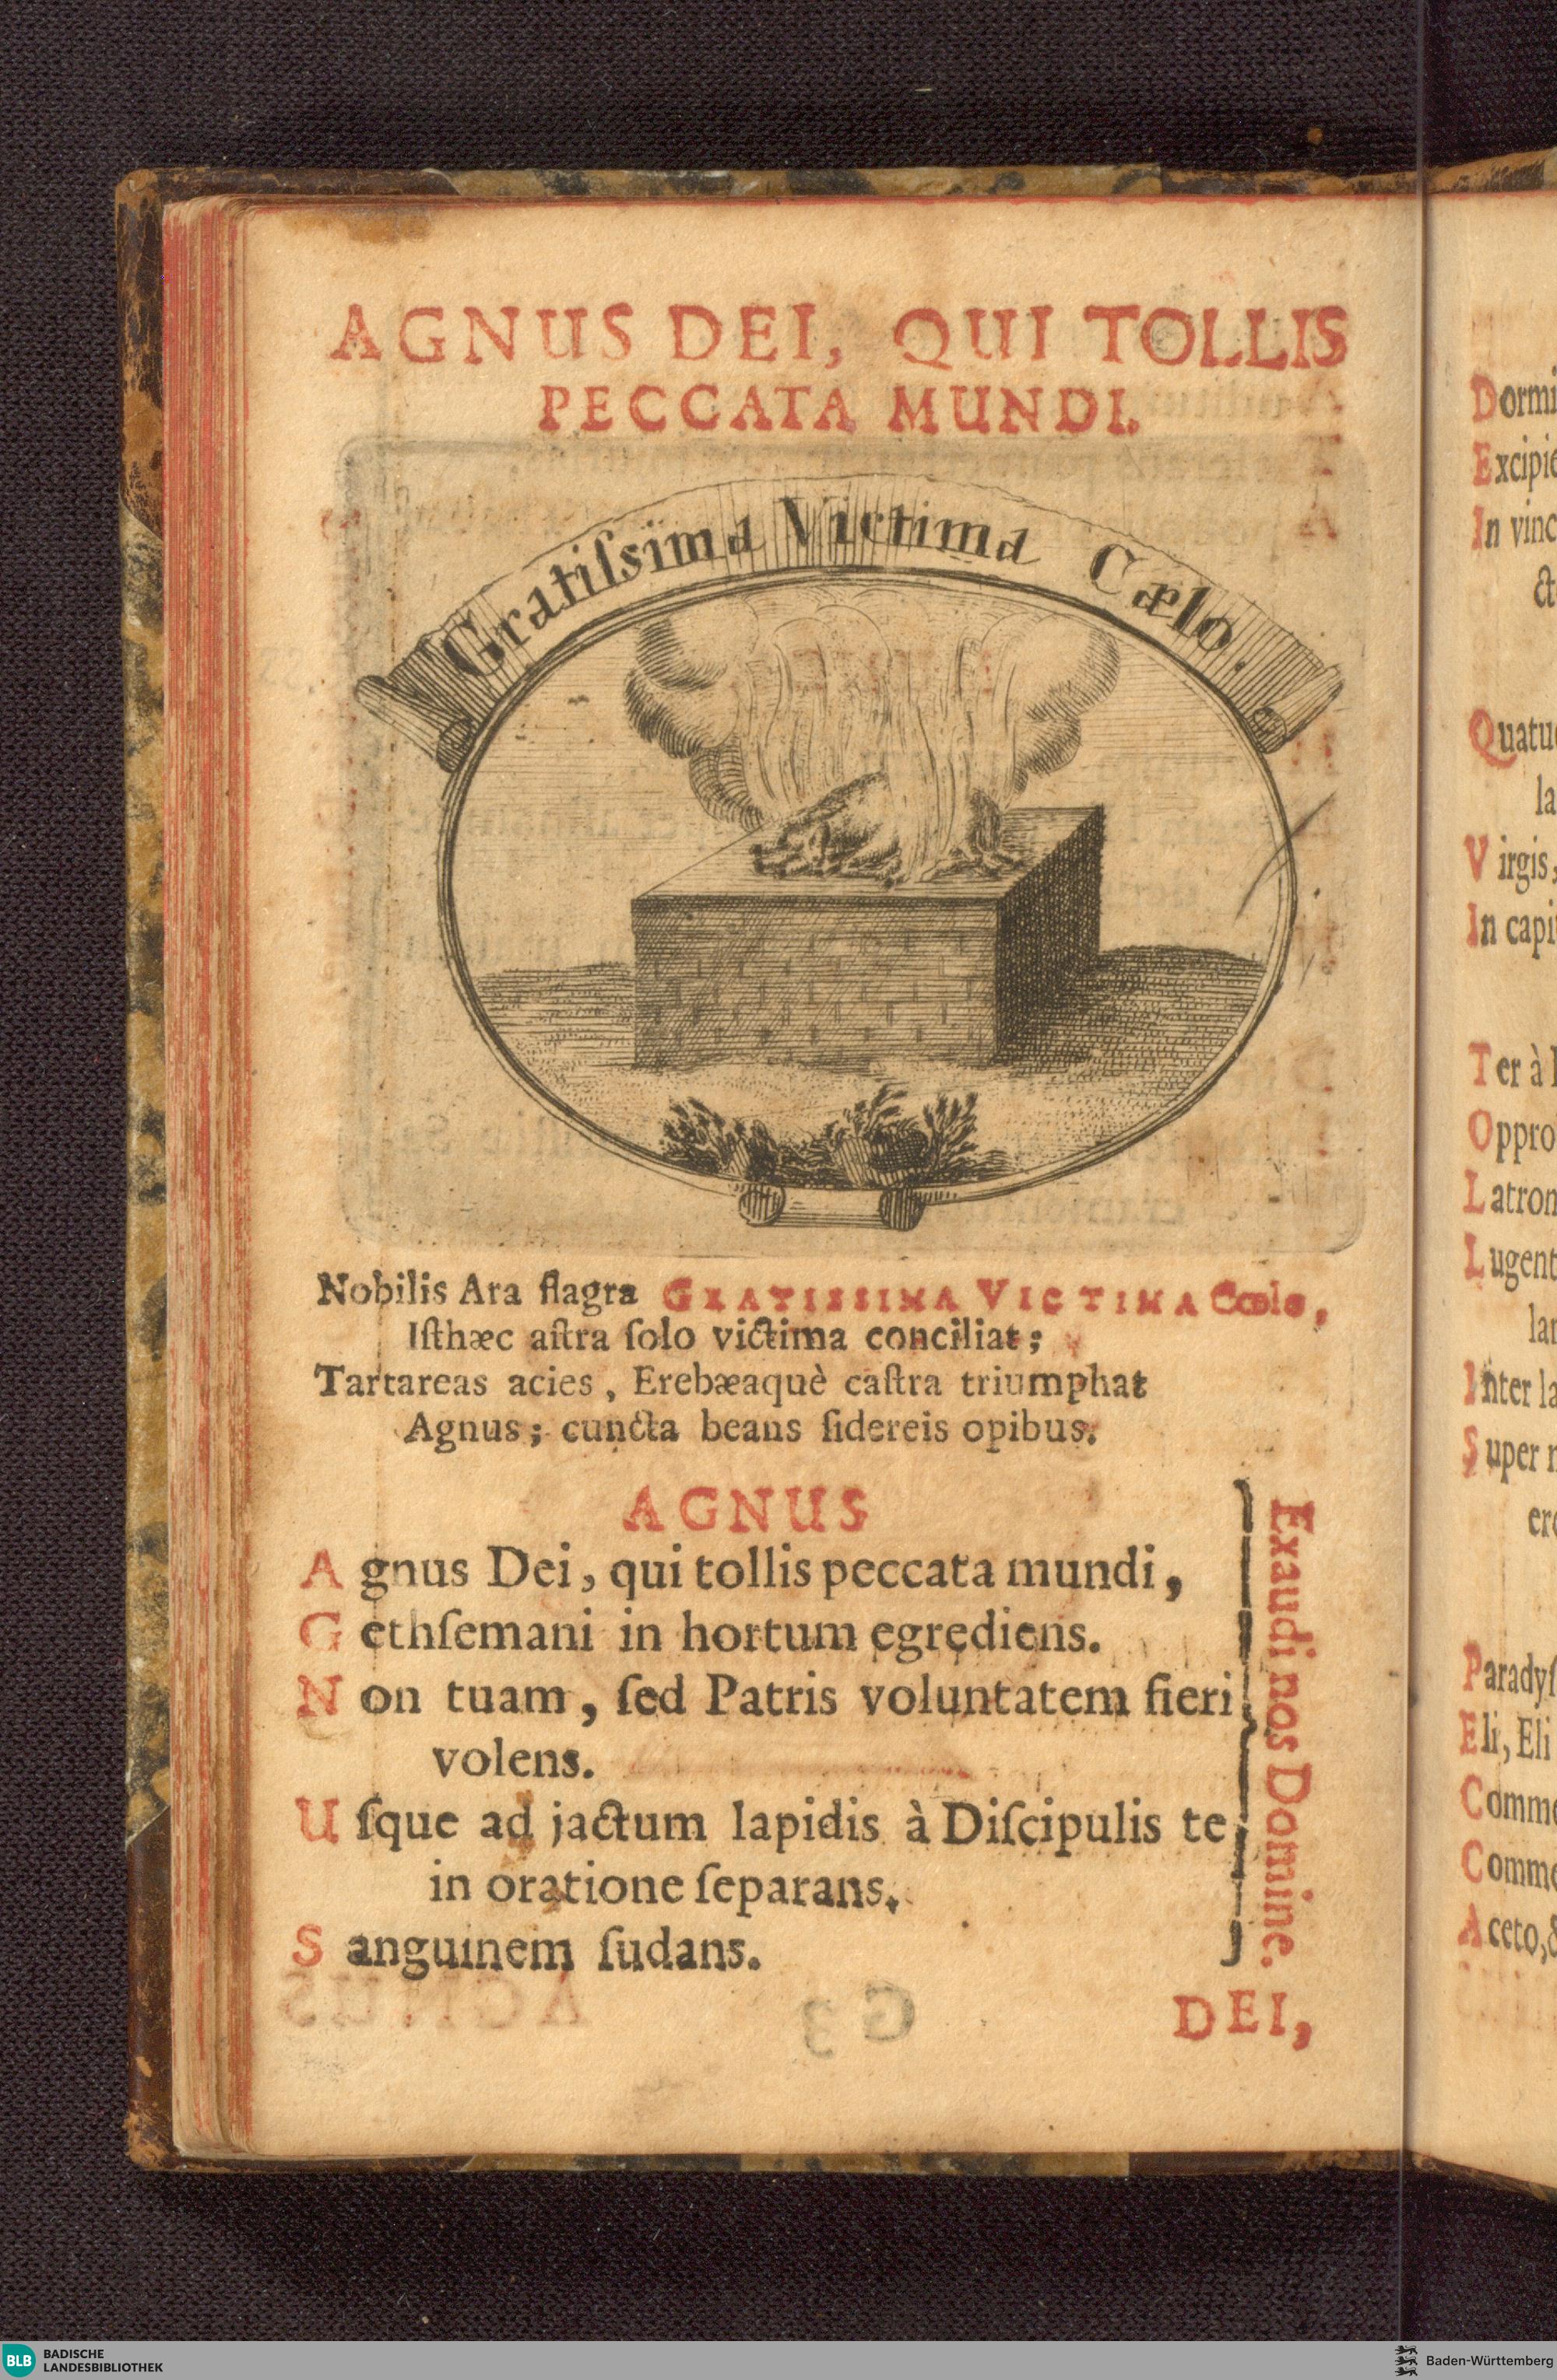 AGNUS DEI, QUI TOLLIS
PECCATA MUNDI.
Gratiſsima Victima Cælo.
Nobilis Ara flagra GRATISSIMA VICTIMA Cœlo,
Iſthæc aſtra ſolo victima conciliat;
Tartareas acies, Erebæaquè caſtra triumphat
Agnus; cuncta beans ſidereis opibus.
AGNUS
Agnus Dei, qui tollis peccata mundi,
Gethſemani in hortum egrediens.
Non tuam, ſed Patris voluntatem fieri
volens.
Uſque ad jactum lapidis à Diſcipulis te
in oratione ſeparans.
Sanguinem ſudans.
Exaudi nos Domine.
DEI,
Dormi
Excipie
In vinc
ct
Quatu
la
Virgis,
In capi
Ter à
Oppro
Latron
Lugent
lan
Inter la
Super
Paradyſ
Eli, Eli
Comm
Comm
Aceto,
BLB BADISCHE
LANDESBIBLIOTHEK
Baden-Württemberg